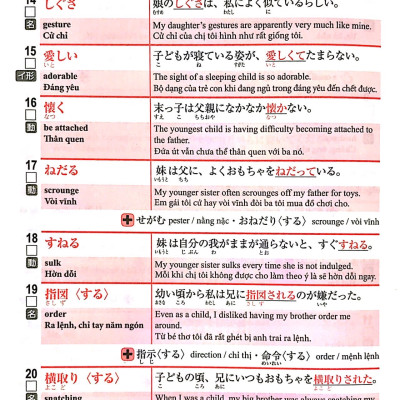 14 しぐさ 娘のしぐさは、私によく似ているらしい。
名 gesture My daughter's gestures are apparently very much like mine.
Cử chỉ Cử chỉ của chị tôi hình như rất giống tôi.
15 愛しい 子どもが寝ている姿が、愛しくてたまらない。
いと こ ね すがた いと
イ形 adorable The sight of a sleeping child is so adorable.
Đáng yêu Bộ dạng của trẻ con khi đang ngủ trong đáng yêu đến chết được.
16 懐く 末っ子は父親になかなか懐かない。
なつ すえ こ ちちおや なつ
動 be attached The youngest child is having difficulty becoming attached to
Thân quen the father.
Đứa út vẫn chưa thể thân quen với ba nó.
17 ねだる 妹は父に、よくおもちゃをねだっている。
いもうと ちち
動 scrounge My younger sister often scrounges off my father for toys.
Vòi vĩnh Em gái tôi cứ hay vòi vĩnh đòi ba tôi mua đồ chơi cho.
+ せがむ pester / nằng nặc・おねだり〈する〉 scrounge / vòi vĩnh
18 すねる 妹は自分のわがままが通らないと、すぐすねる。
いもうと じぶん とお
動 sulk My younger sister sulks every time she is not indulged.
Hờn dỗi Mỗi khi chị tôi không được cho làm theo ý là sẽ hờn dỗi ngay.
19 指図〈する〉 幼い頃から私は兄に指図されるのが嫌だった。
さしず おさな ころ わたし あに さしず いや
名 order Even as a child, I disliked having my brother order me
Ra lệnh, chỉ tay năm ngón around.
Từ bé thơ tôi đã rất ghét bị anh trai ra lệnh.
+ 指示〈する〉 direction / chỉ thị・命令〈する〉 order / mệnh lệnh
しじ めいれい
20 横取り〈する〉 子どもの頃、兄にいつもおもちゃを横取りされた。
よこど こ ころ あに よこど
名 snatching When I was a child, my big brother was always snatching my